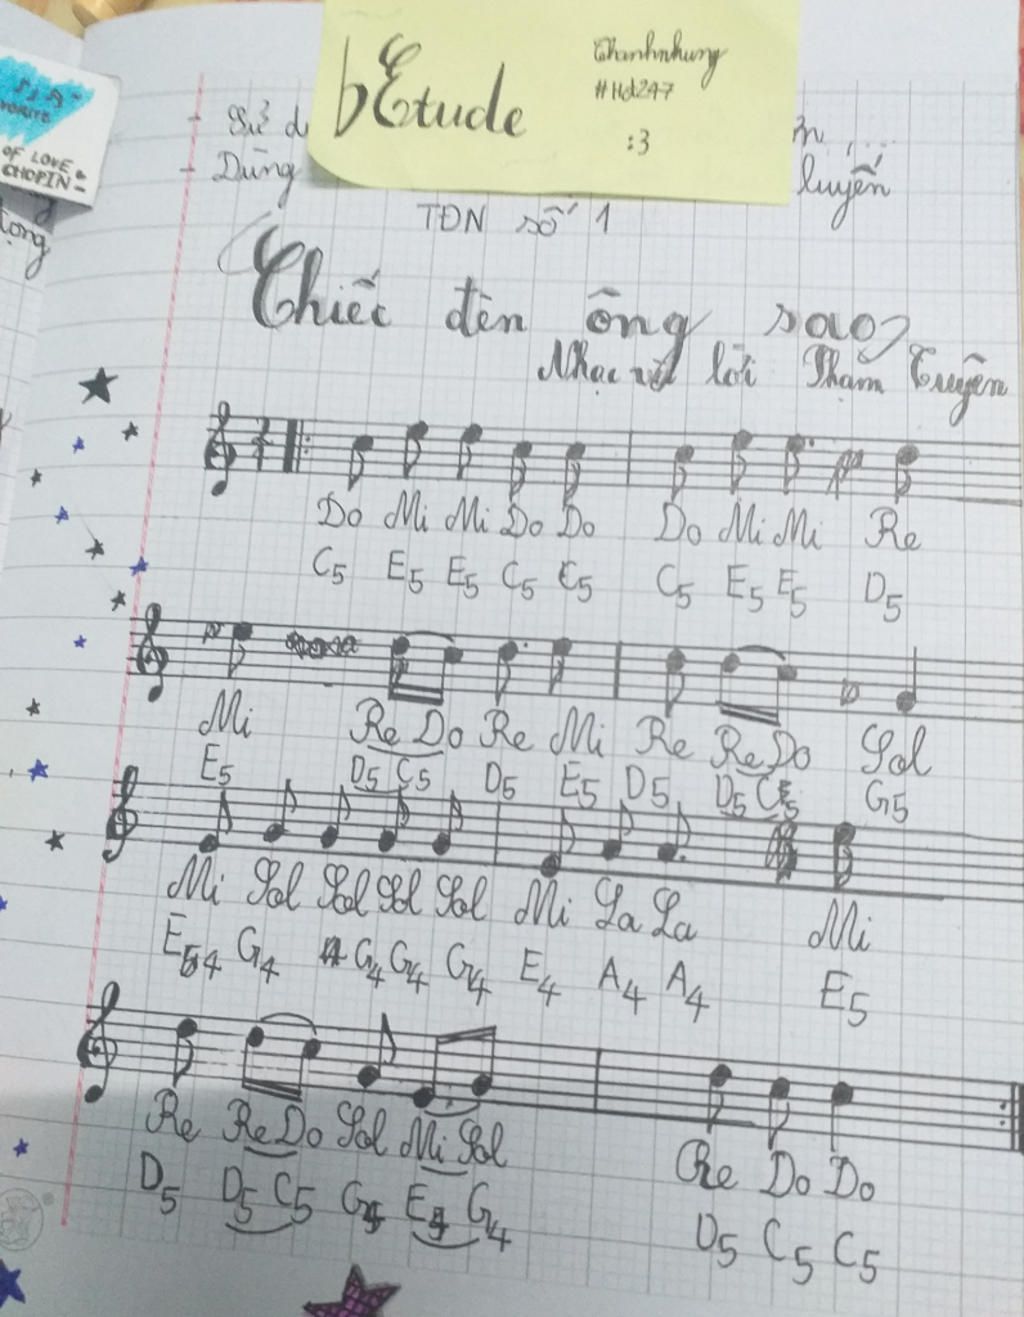 bEtude
Thanhnhung
#Hd247
:3
OF LOVE
CHOPIN
- Sử d
- Dùng
luyến
TĐN số 1
Chiếc đèn ông sao
Nhạc và lời Phạm Tuyên
Do Mi Mi Do Do Do Mi Mi Re
C5 E5 E5 C5 C5 C5 E5 E5 D5
Mi Re Do Re Mi Re Re Do Sol
E5 D5 C5 D5 E5 D5 D5 C5 G5
Mi Sol Sol Sol Sol Mi La La Mi
E4 G4 G4 G4 G4 E4 A4 A4 E5
Re Re Do Sol Mi Sol Re Do Do
D5 D5 C5 G4 E4 G4 D5 C5 C5